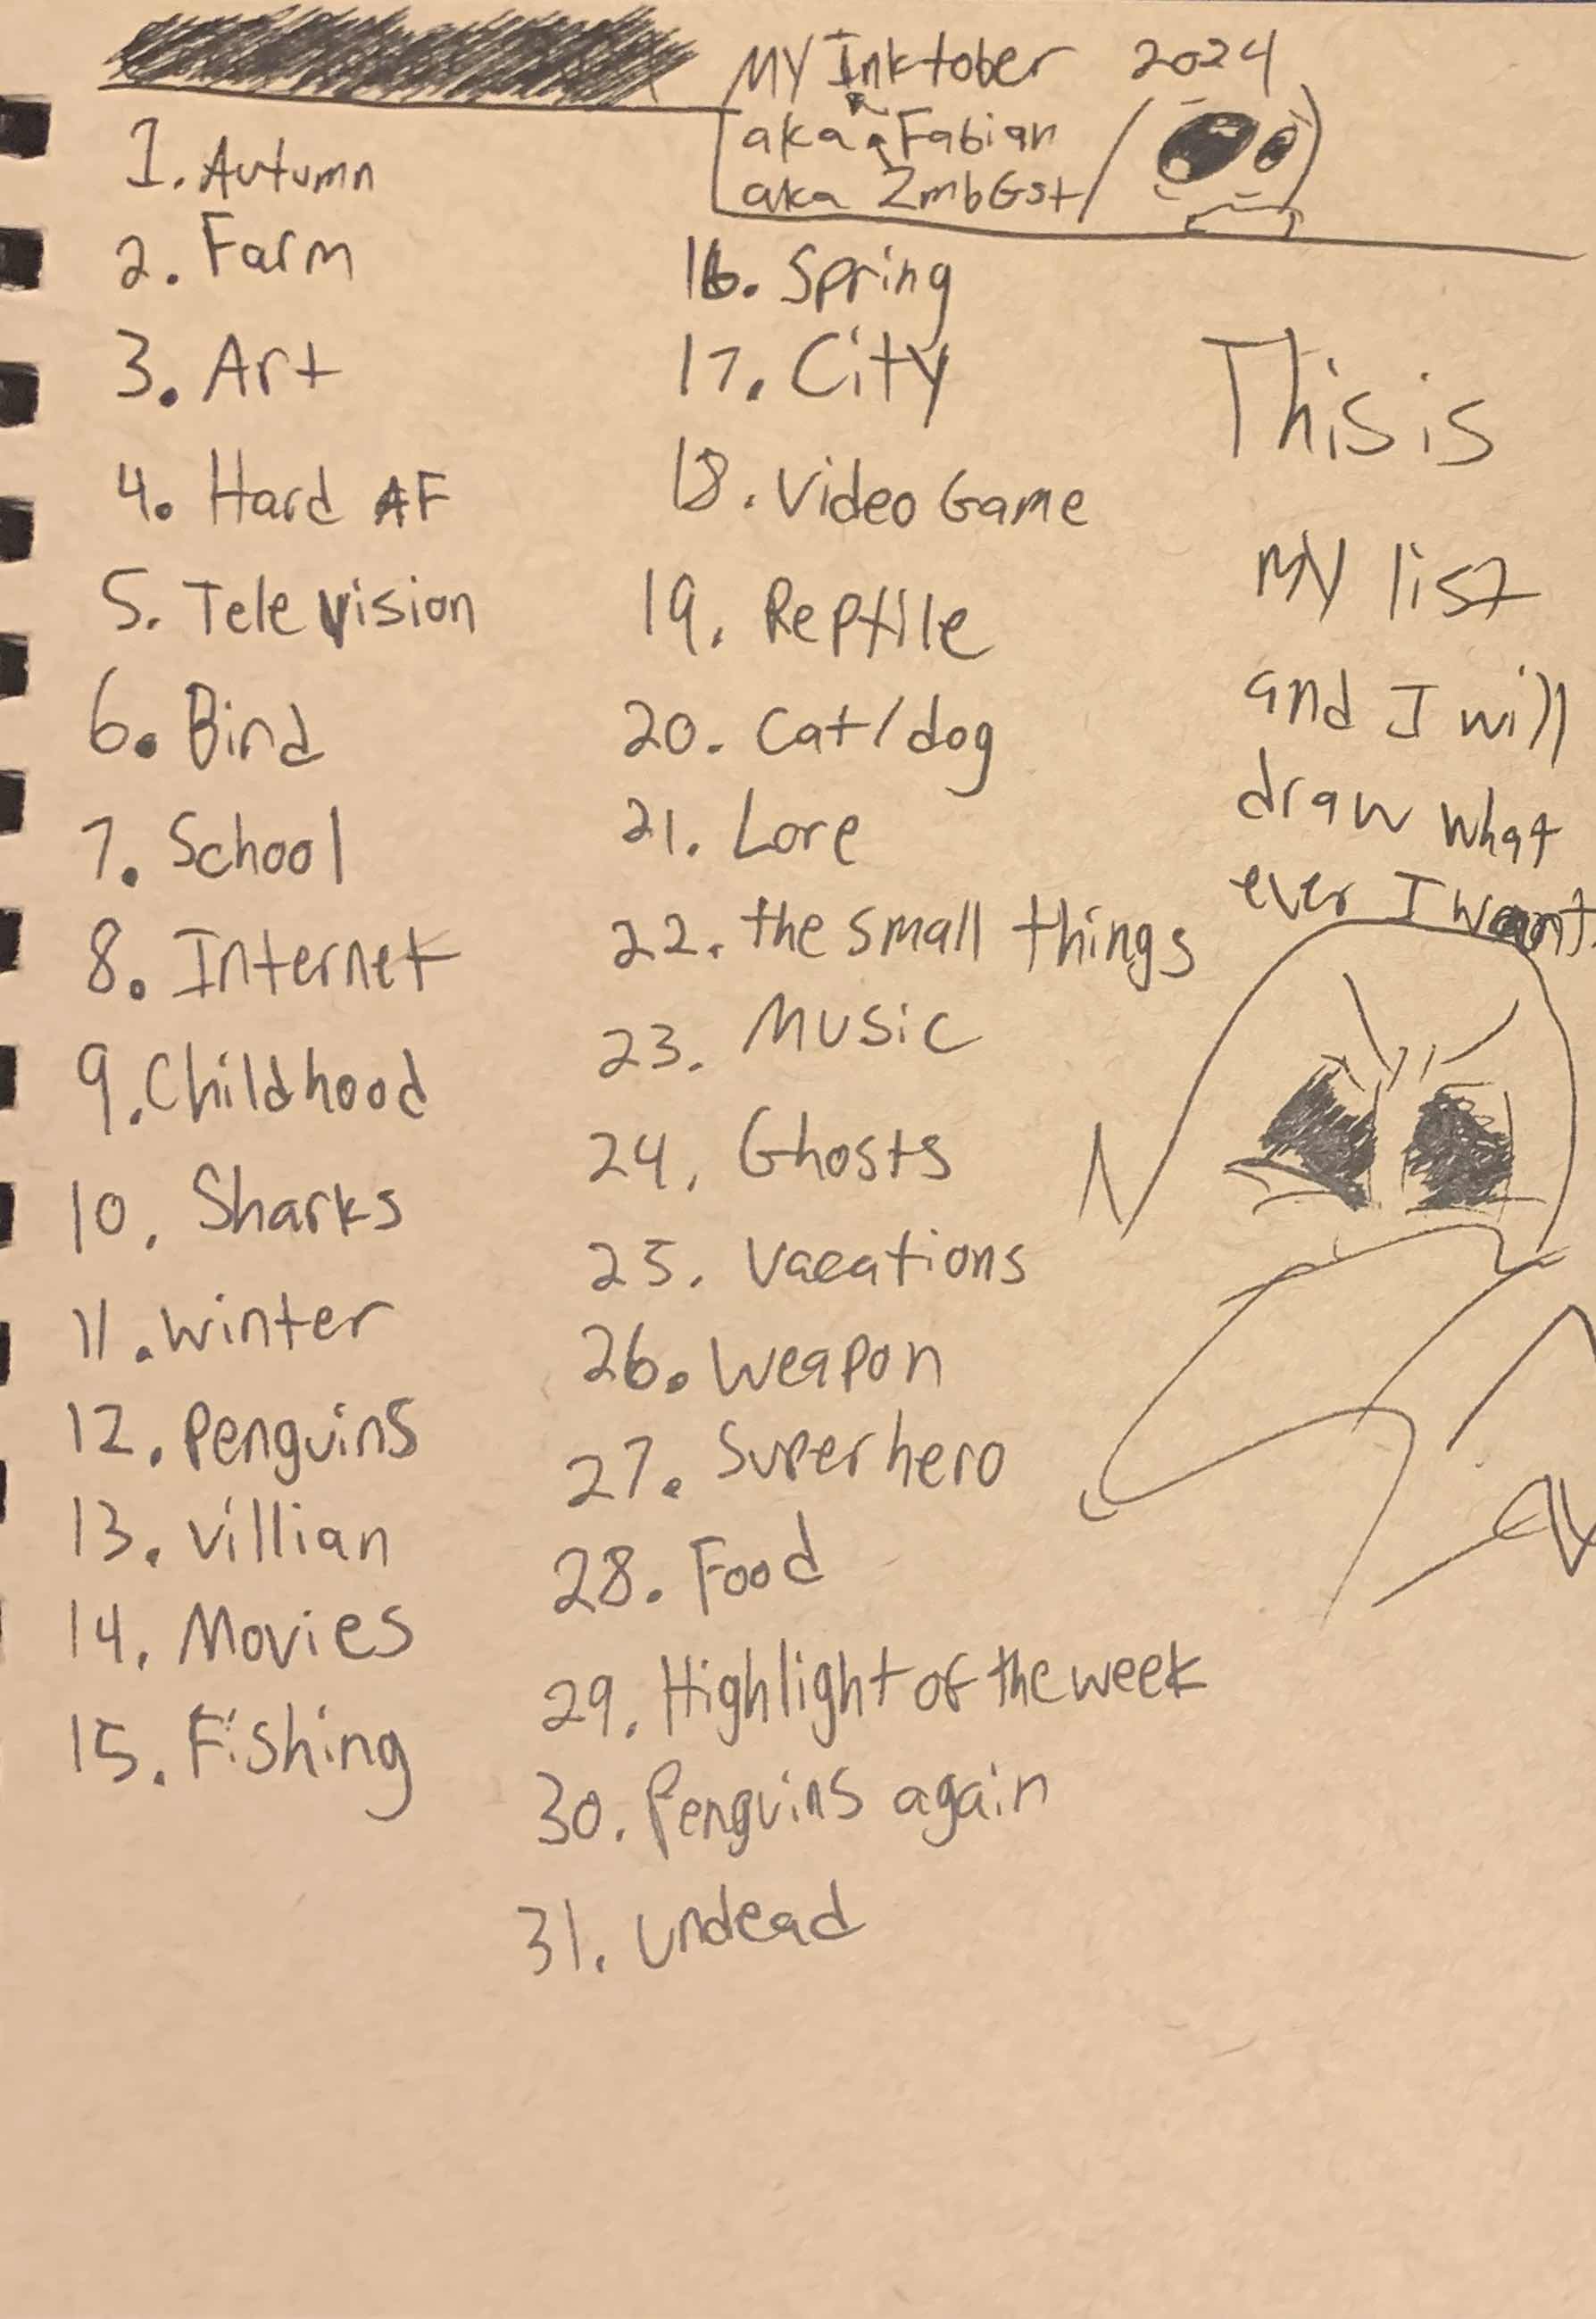 MY Inktober 2024
aka Fabian
aka ZmbGst
1. Autumn
2. Farm
3. Art
4. Hard AF
5. Television
6. Bird
7. School
8. Internet
9. Childhood
10. Sharks
11. winter
12. Penguins
13. villian
14. Movies
15. Fishing
16. Spring
17. City
18. Video Game
19. Reptile
20. Cat/dog
21. Lore
22. the small things
23. Music
24. Ghosts
25. Vacations
26. weapon
27. Superhero
28. Food
29. Highlight of the week
30. Penguins again
31. undead
This is
my list
and I will
draw what
ever I want.